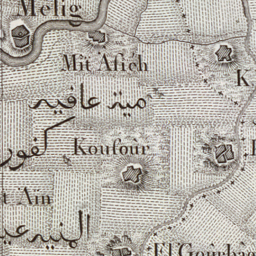 Melig
Mit Afieh
ميت عافيه
K
كفور
Koufoûr
t Aïn
المنيه عي
El Gourba